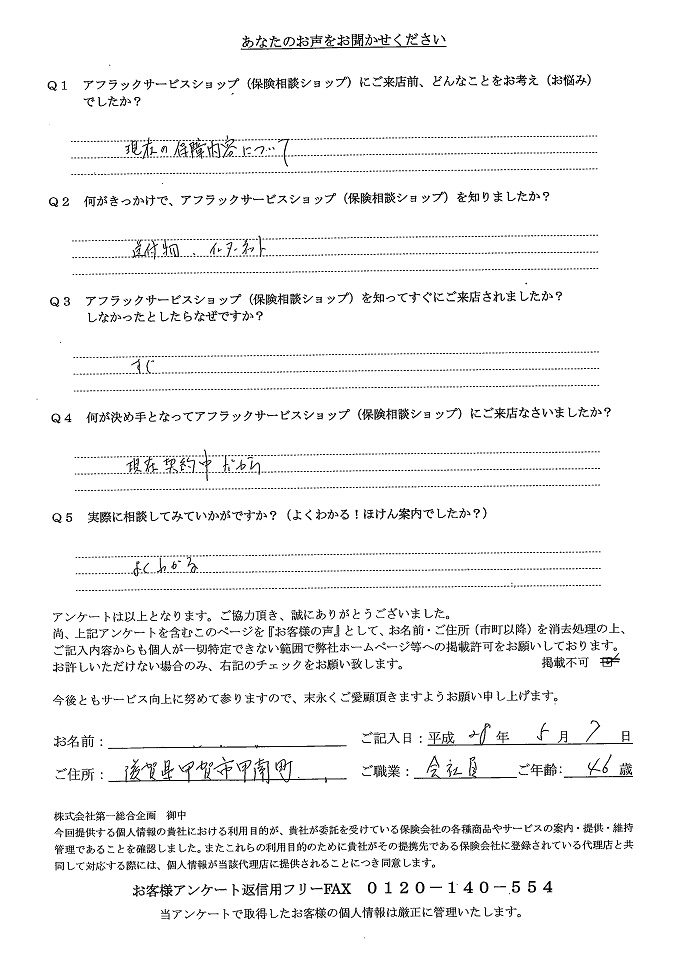 あなたのお声をお聞かせください
Q1 アフラックサービスショップ（保険相談ショップ）にご来店前、どんなことをお考え（お悩み）
でしたか？
現在の保障内容について
Q2 何がきっかけで、アフラックサービスショップ（保険相談ショップ）を知りましたか？
送付物、インターネット
Q3 アフラックサービスショップ（保険相談ショップ）を知ってすぐにご来店されましたか？
しなかったとしたらなぜですか？
すぐ
Q4 何が決め手となってアフラックサービスショップ（保険相談ショップ）にご来店なさいましたか？
現在契約中だから
Q5 実際に相談してみていかがですか？（よくわかる！ほけん案内でしたか？）
よくわかる
アンケートは以上となります。ご協力頂き、誠にありがとうございました。
尚、上記アンケートを含むこのページを『お客様の声』として、お名前・ご住所（市町以降）を消去処理の上、
ご記入内容からも個人が一切特定できない範囲で弊社ホームページ等への掲載許可をお願いしております。
お許しいただけない場合のみ、右記のチェックをお願い致します。 掲載不可
今後ともサービス向上に努めて参りますので、末永くご愛顧頂きますようお願い申し上げます。
お名前： ご記入日：平成 28 年 5 月 7 日
ご住所： 滋賀県甲賀市甲南町 ご職業： 会社員 ご年齢： 46 歳
株式会社第一総合企画 御中
今回提供する個人情報の貴社における利用目的が、貴社が委託を受けている保険会社の各種商品やサービスの案内・提供・維持
管理であることを確認しました。またこれらの利用目的のために貴社がその提携先である保険会社に登録されている代理店と共
同して対応する際には、個人情報が当該代理店に提供されることにつき同意します。
お客様アンケート返信用フリーFAX 0120－140－554
当アンケートで取得したお客様の個人情報は厳正に管理いたします。